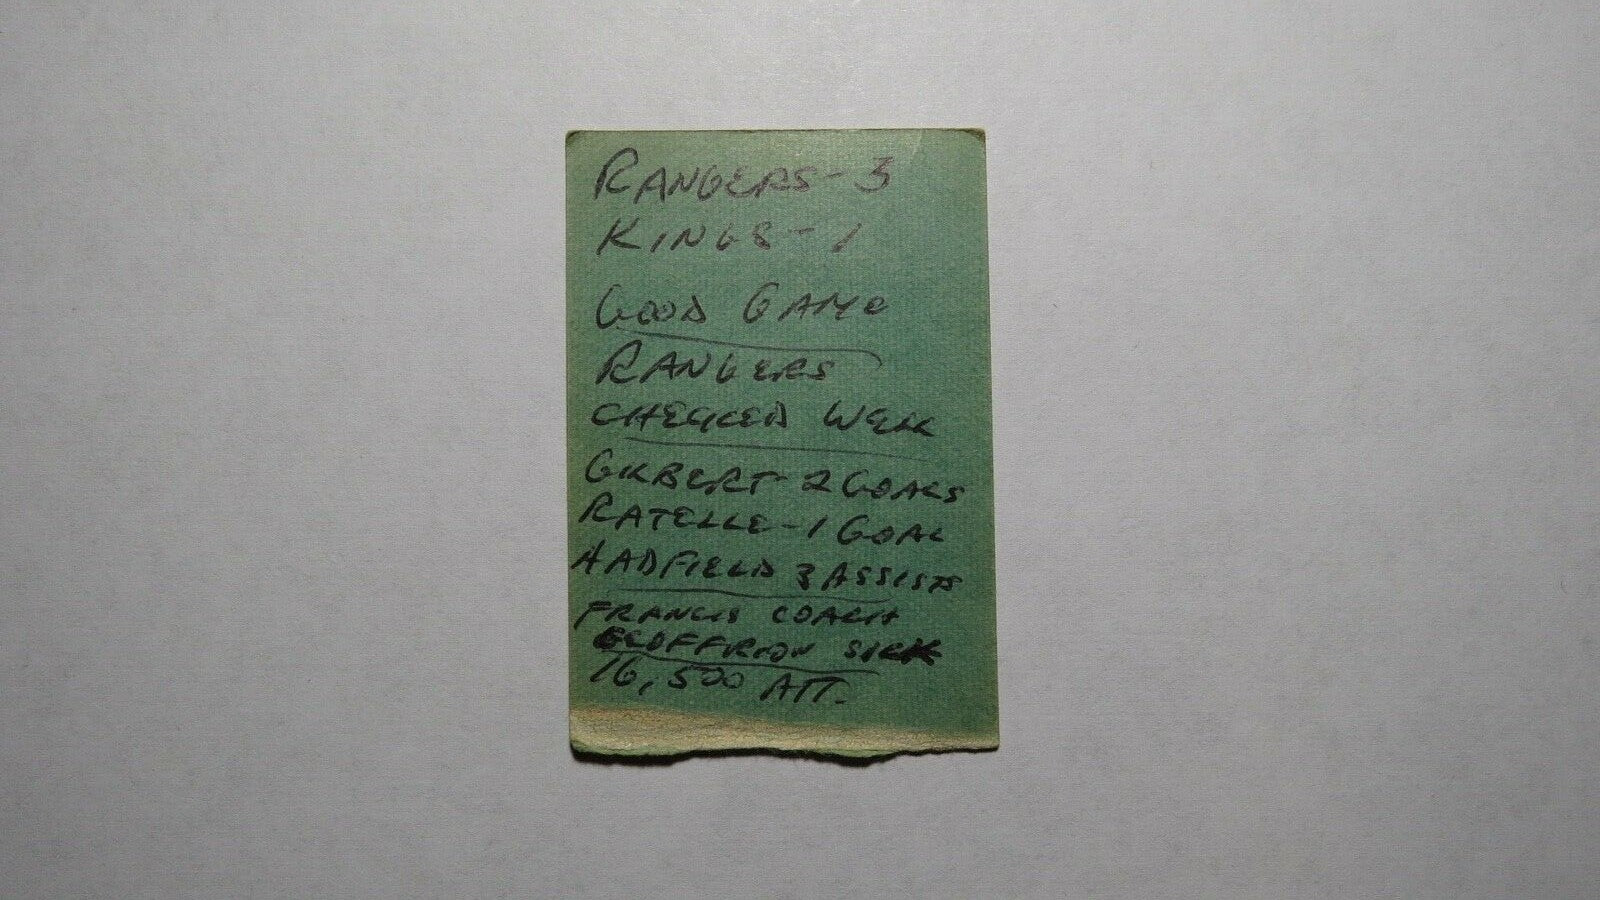 RANGERS - 3
KINGS - 1
GOOD GAME
RANGERS
CHECKED WELL
GILBERT - 2 GOALS
RATELLE - 1 GOAL
HADFIELD 3 ASSISTS
FRANCIS COACH
GEOFFRION SICK
16,500 ATT.